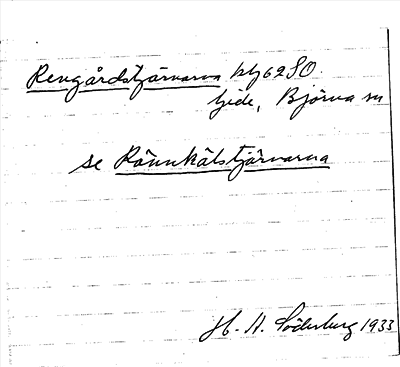 Rengårdstjärnarna blf 62 SO
Gide, Björna sn
se Rännkälstjärnarna
H. A. Söderberg 1933